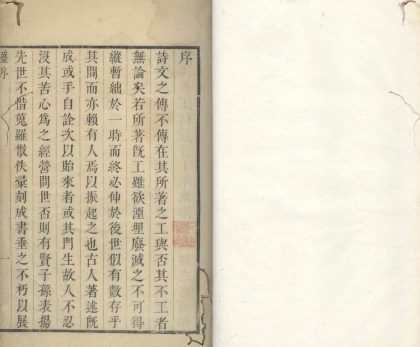 序
詩文之傳不傳在其所著之工與否其不工者
無論矣若所著既工雖欲湮埋廢滅之不可得
縱暫絀於一時而終必伸於後世假有數存乎
其閒而亦賴有人焉以振起之也古人著述既
成或手自詮次以貽來者或其門生故人不忍
沒其苦心為之經營問世否則有賢子孫表揚
先世不惜蒐羅散佚彙刻成書垂之不朽以展